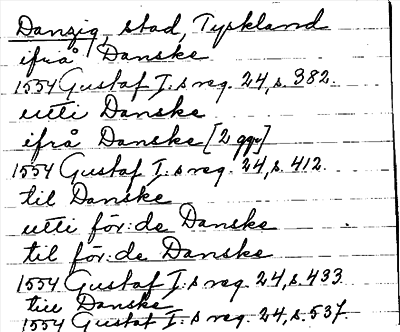 Danzig, stad, Tyskland
ifrå Danske
1554 Gustaf I:s reg. 24, s. 382.
utti Danske
ifrå Danske [2 ggr]
1554 Gustaf I:s reg. 24, s. 412.
til Danske
utti för:de Danske
til för:de Danske
1554 Gustaf I:s reg. 24, s. 433
till Danske
1554 Gustaf I:s reg. 24, s. 537.